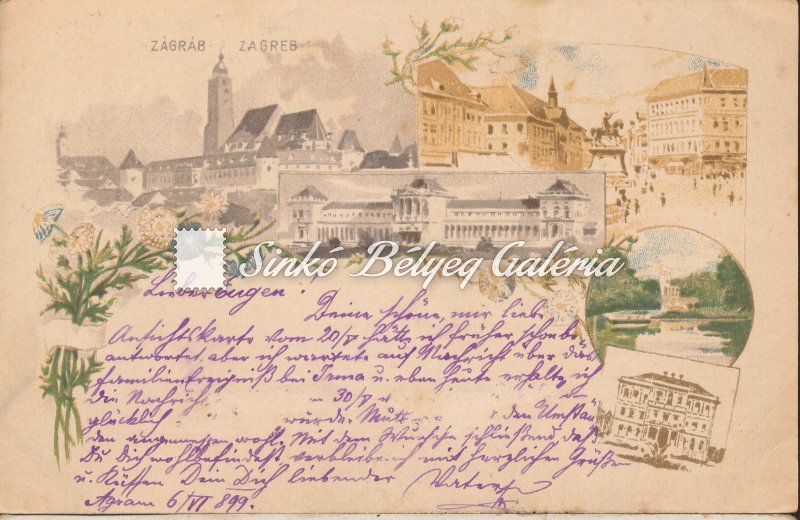 ZÁGRÁB ZAGREB
Sinkó Bélyeg Galéria
Lieber Eugen!
Deine schöne, mir liebe
Ansichtskarte vom 20/V hätte ich früher schon be
antwortet, aber ich wartete auf Nachricht über das
Familienereigniß bei Irma u. eben heute erhalte ich
die Nachricht 30/V
glücklich würde. Mutt den Umstän
den angemessen wohl. Mit dem Wunsche schließend daß
Du Dich wohlbefindest verbleibe ich mit herzlichen Grüßen
u. Küssen Dein Dich liebender Vater
Agram 6/VI 899.